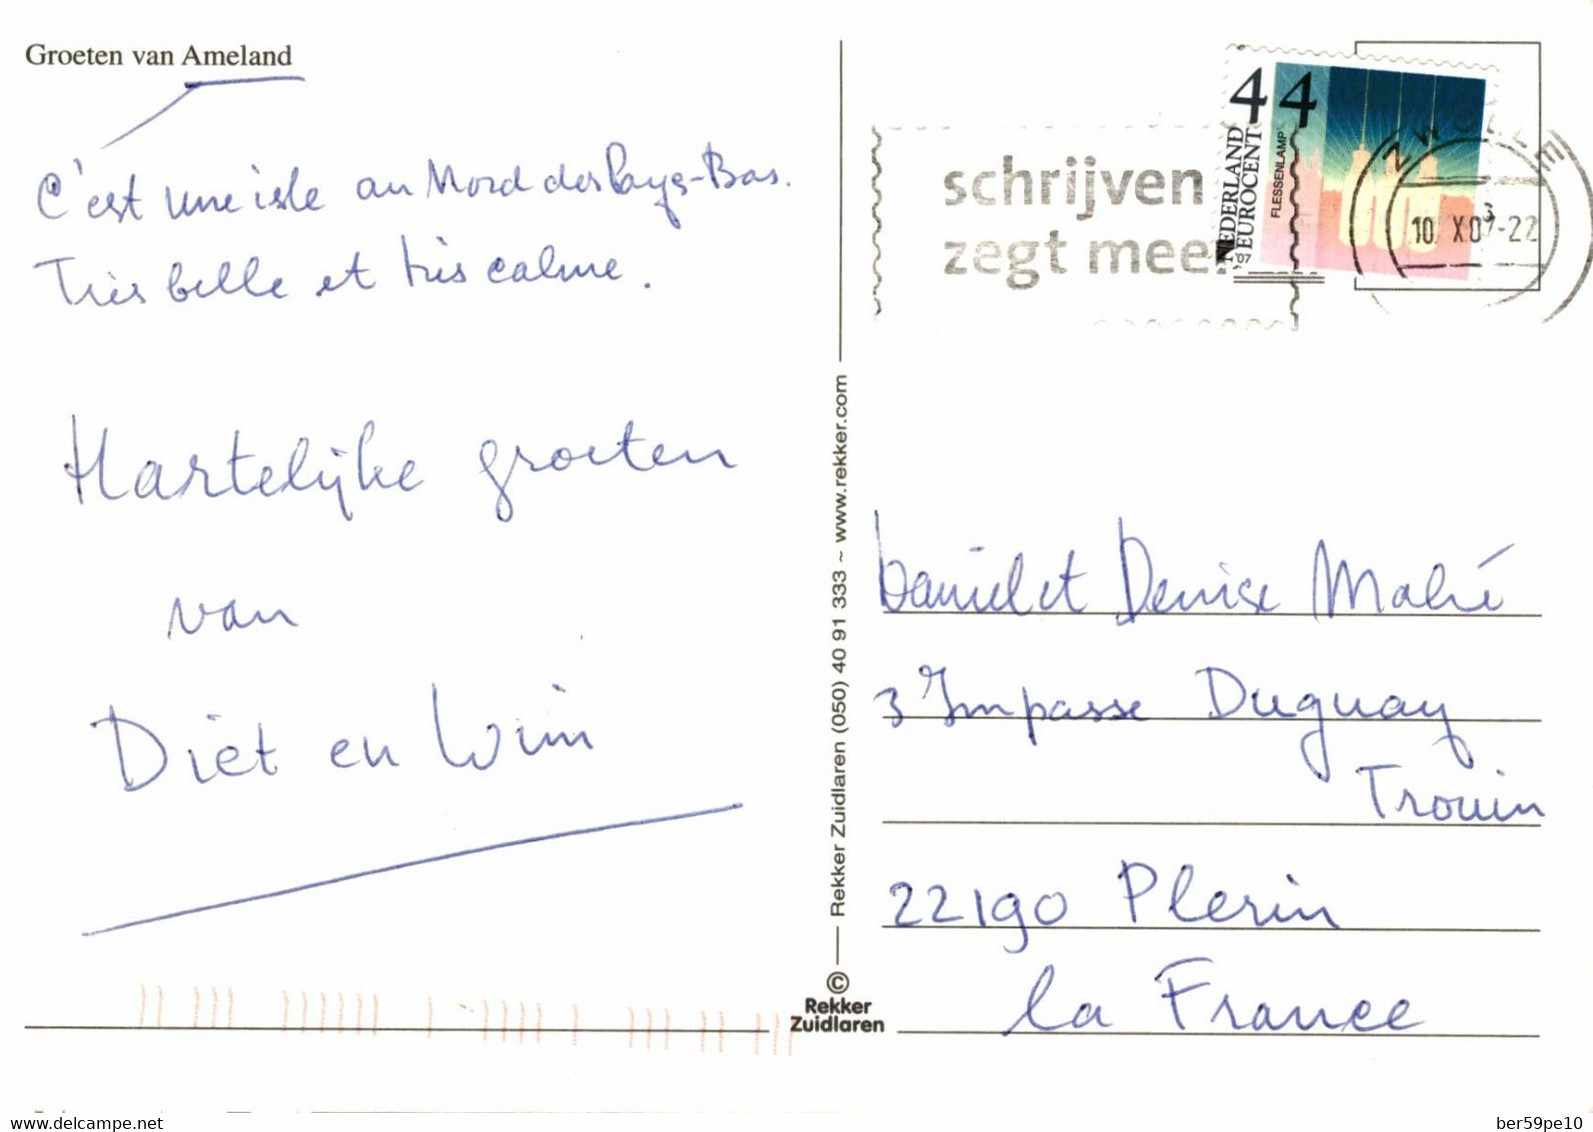 Groeten van Ameland
C'est une isle au Nord des Pays-Bas.
Très belle et très calme.
Hartelijke groeten
van
Diet en Wim
© Rekker Zuidlaren
Rekker Zuidlaren (050) 40 91 333 ~ www.rekker.com
schrijven
zegt meer
44
NEDERLAND
EUROCENT
FLESSENLAMP
'97
ZWOLLE
10. X.0 -22
Daniel et Denise Mahé
3 Impasse Duguay
Trouin
22190 Plerin
la France
www.delcampe.net
ber59pe10